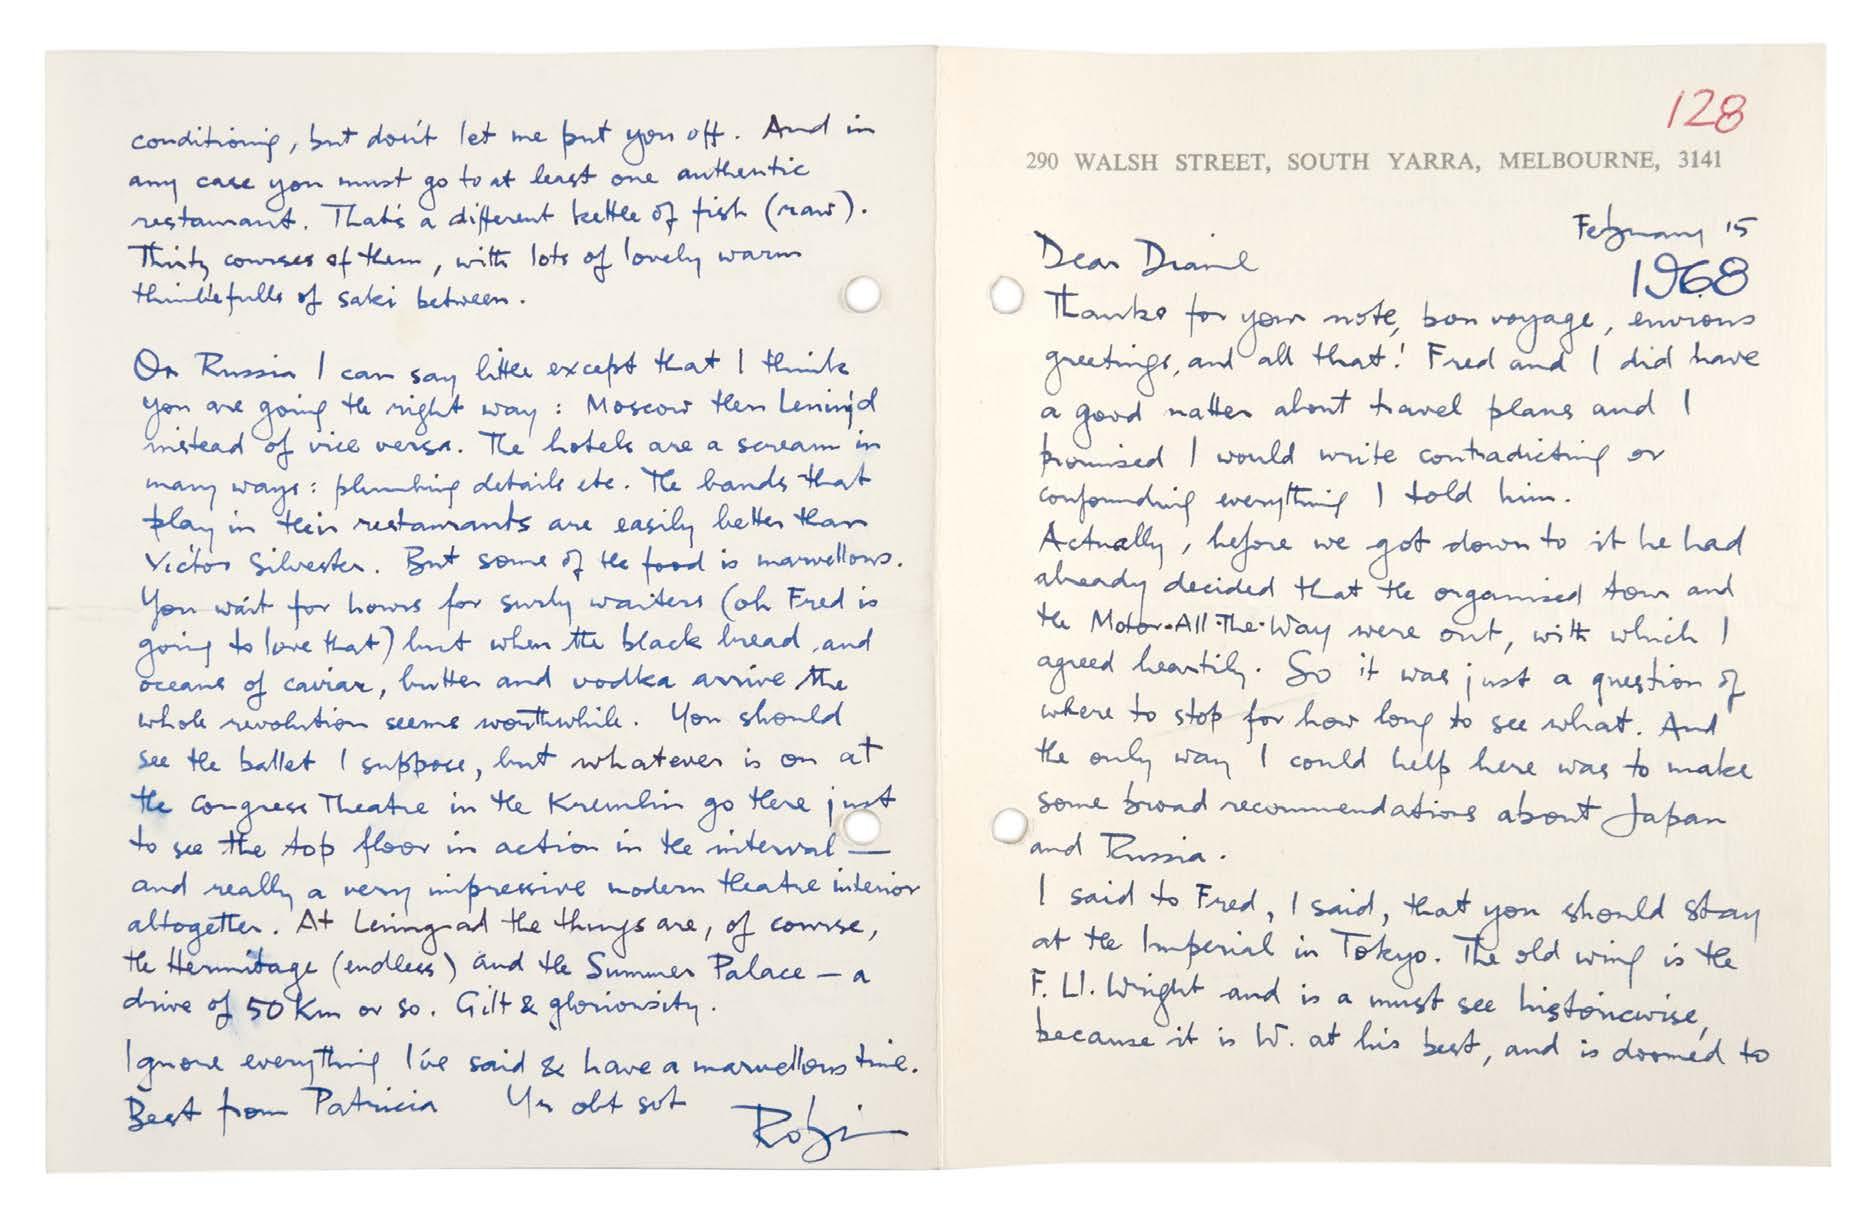 128
290 WALSH STREET, SOUTH YARRA, MELBOURNE, 3141
February 15
1968
Dear Diane
Thanks for your note, bon voyage, envious
greetings, and all that! Fred and I did have
a good natter about travel plans and I
promised I would write contradicting or
confounding everything I told him.
Actually, before we got down to it he had
already decided that the organised tour and
the Motor-All-The-Way were out, with which I
agreed heartily. So it was just a question of
where to stop for how long to see what. And
the only way I could help here was to make
some broad recommendations about Japan
and Russia.
I said to Fred, I said, that you should stay
at the Imperial in Tokyo. The old wing is the
F. Ll. Wright and is a must see historicwise,
because it is W. at his best, and is doomed to
conditioning, but don't let me put you off. And in
any case you must go to at least one authentic
restaurant. That's a different kettle of fish (raw).
Thirty courses of them, with lots of lovely warm
thimblefulls of saki between.
On Russia I can say little except that I think
you are going the right way: Moscow then Lening'd
instead of vice versa. The hotels are a scream in
many ways: plumbing details etc. The bands that
play in their restaurants are easily better than
Victor Silvester. But some of the food is marvellous.
You wait for hours for surly waiters (oh Fred is
going to love that) but when the black bread, and
oceans of caviar, butter and vodka arrive the
whole revolution seems worthwhile. You should
see the ballet I suppose, but whatever is on at
the Congress Theatre in the Kremlin go there just
to see the top floor in action in the interval —
and really a very impressive modern theatre interior
altogether. At Leningrad the things are, of course,
the Hermitage (endless) and the Summer Palace — a
drive of 50 Km or so. Gilt & gloriousity.
Ignore everything I've said & have a marvellous time.
Best from Patricia Yr obt svt
Robin